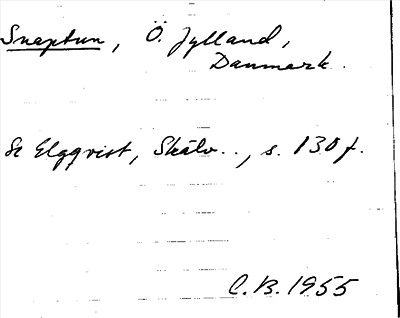 Snaptun, Ö. Jylland,
Danmark.
Se Elgqvist, Skälv.., s. 130 f.
C.B. 1955